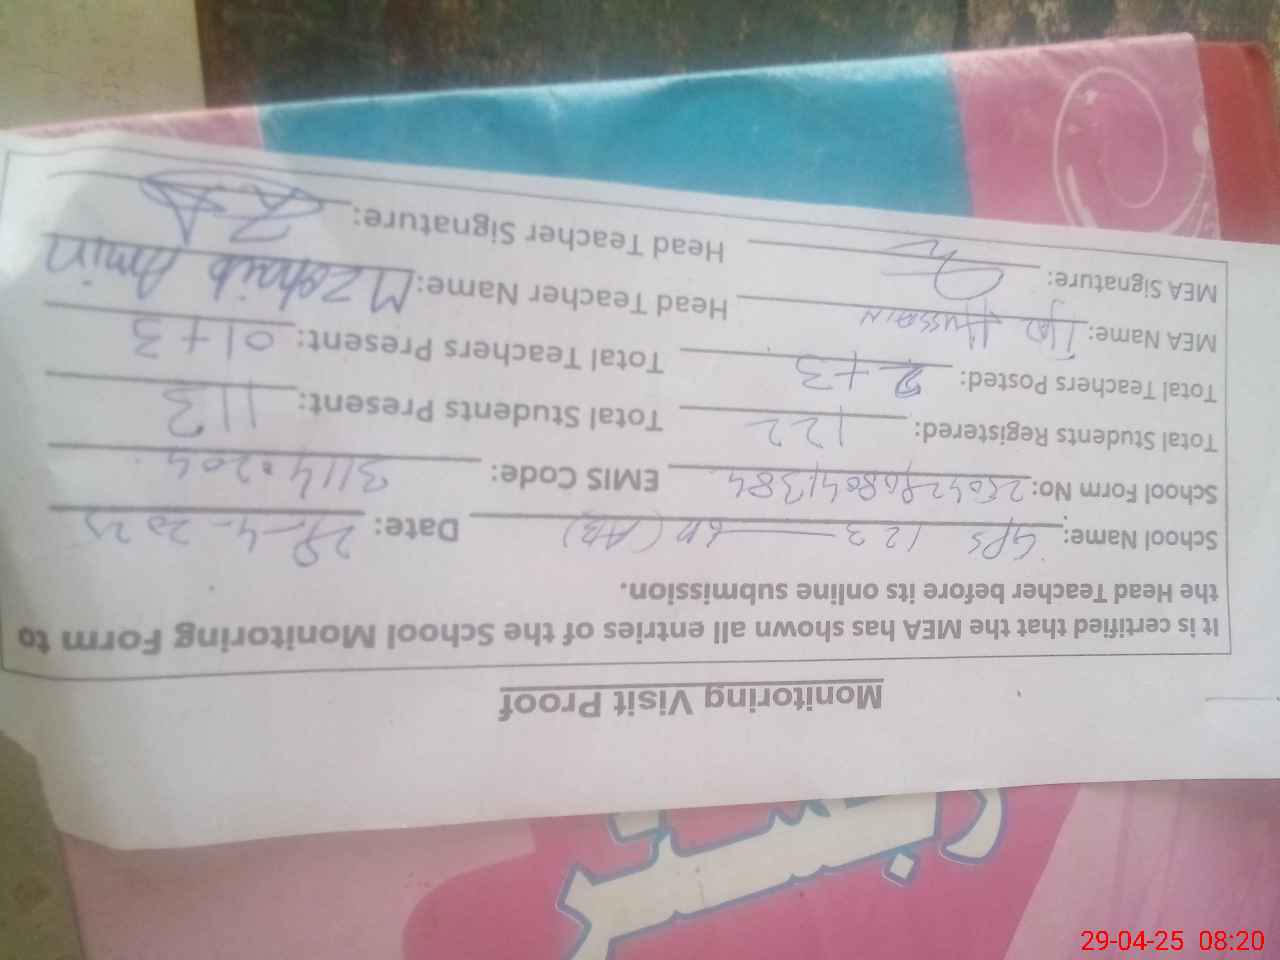 Monitoring Visit Proof
It is certified that the MEA has shown all entries of the School Monitoring Form to
the Head Teacher before its online submission.
School Name: GPS 123 6R (AB) Date: 29-4-2025
School Form No: EMIS Code: 31140204
Total Students Registered: 122 Total Students Present: 113
Total Teachers Posted: 2+3 Total Teachers Present: 01+3
MEA Name: HUSSAIN Head Teacher Name: M Zohaib Amin
MEA Signature: Head Teacher Signature:
رجسٹر
29-04-25 08:20